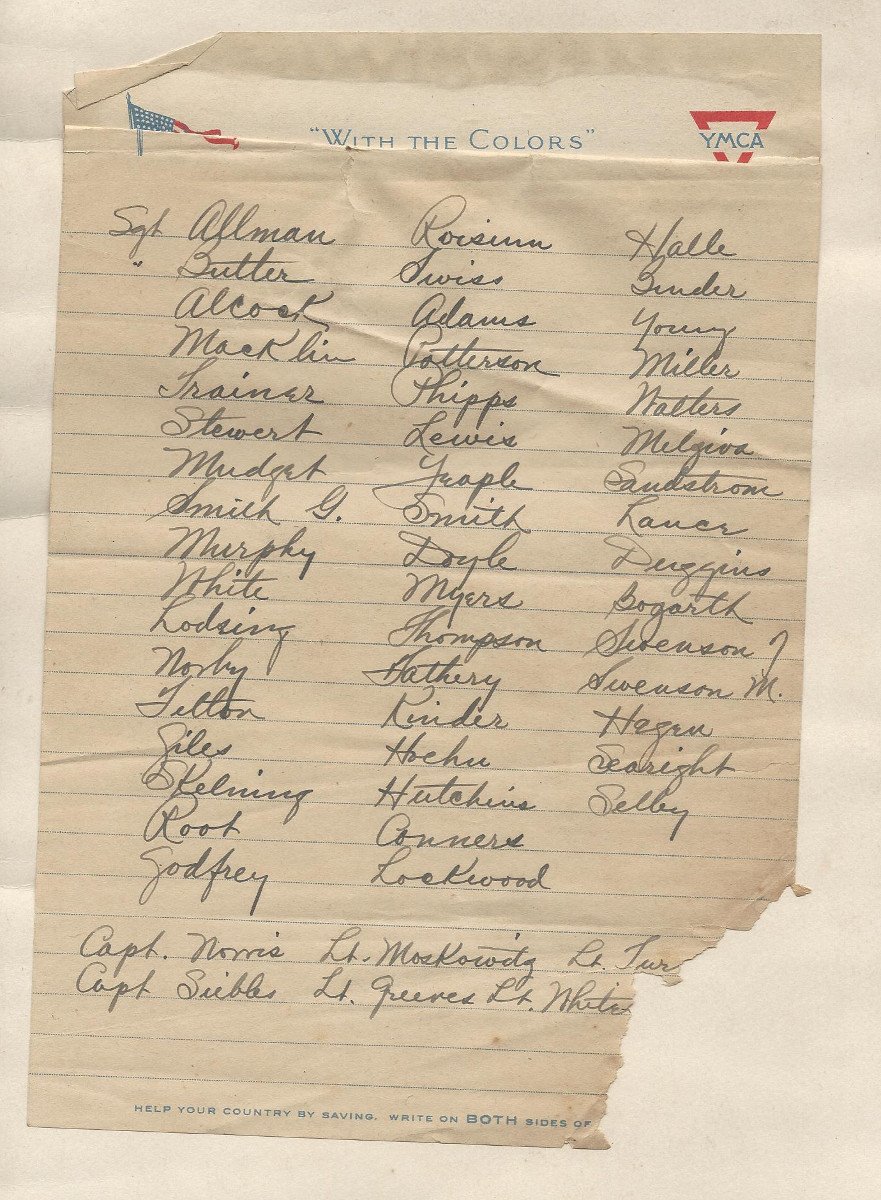 "WITH THE COLORS" YMCA
Sgt Allman Roisinn Halle
" Butler Swiss Binder
Alcock Adams Young
Macklin Patterson Miller
Trainer Phipps Walters
Stewert Lewis
Mudget Yeaple Sandstrom
Smith G. Smith Lance
Murphy Doyle Duggins
White Myers Bogarth
Lodsing Thompson Swenson
Norby Hathery Swenson M.
Tetton Kinder Hagen
Giles Hoehn Searight
Skelning Hutchins Selby
Root Conners
Godfrey Lockwood
Capt. Norris Lt. Moskowitz Lt. Tur
Capt Siebbs Lt. Greeves Lt. White
HELP YOUR COUNTRY BY SAVING. WRITE ON BOTH SIDES OF